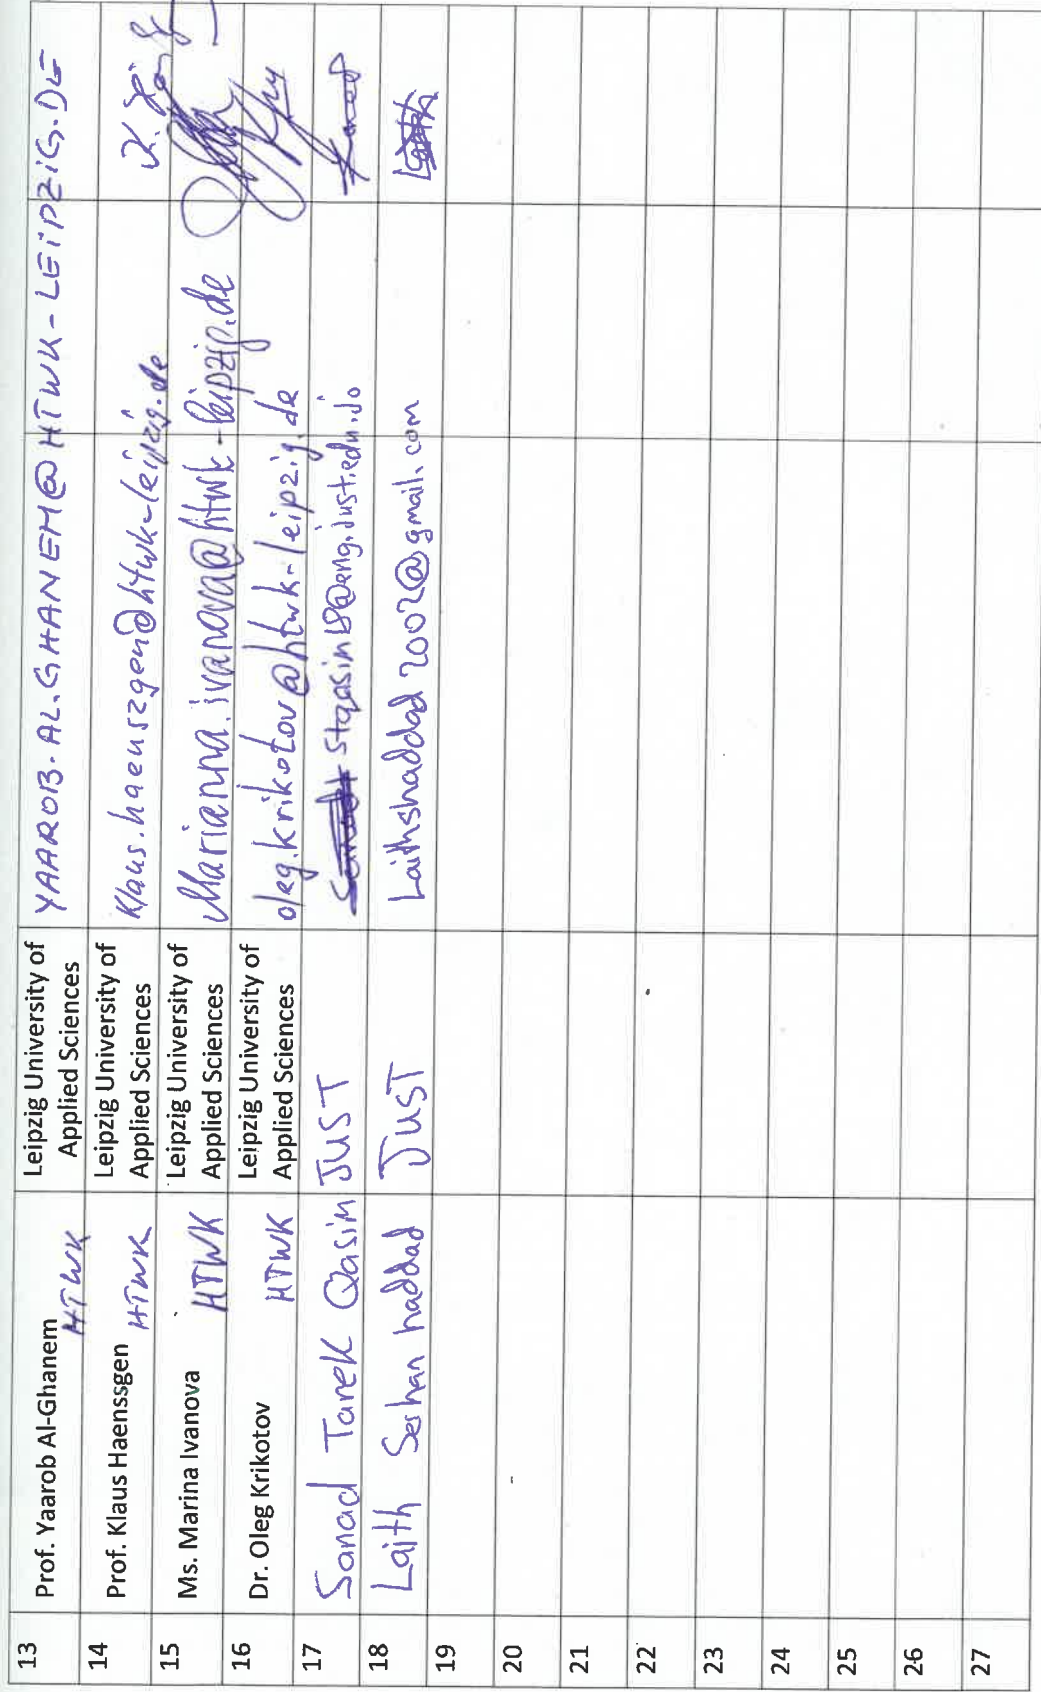 13 Prof. Yaarob Al-Ghanem HTWK Leipzig University of Applied Sciences YAAROB.AL.GHANEM@HTWK-LEIPZIG.DE
14 Prof. Klaus Haenssgen HTWK Leipzig University of Applied Sciences Klaus.haenszgen@htwk-leipzig.de
15 Ms. Marina Ivanova HTWK Leipzig University of Applied Sciences Marianna.ivanova@htwk-leipzig.de
16 Dr. Oleg Krikotov HTWK Leipzig University of Applied Sciences oleg.krikotov@htwk-leipzig.de
17 Sanad Tarek Qasim JUST stqasim18@eng.just.edu.jo
18 Laith Seshan haddad JUST Laithshaddad2002@gmail.com
19
20
21
22
23
24
25
26
27